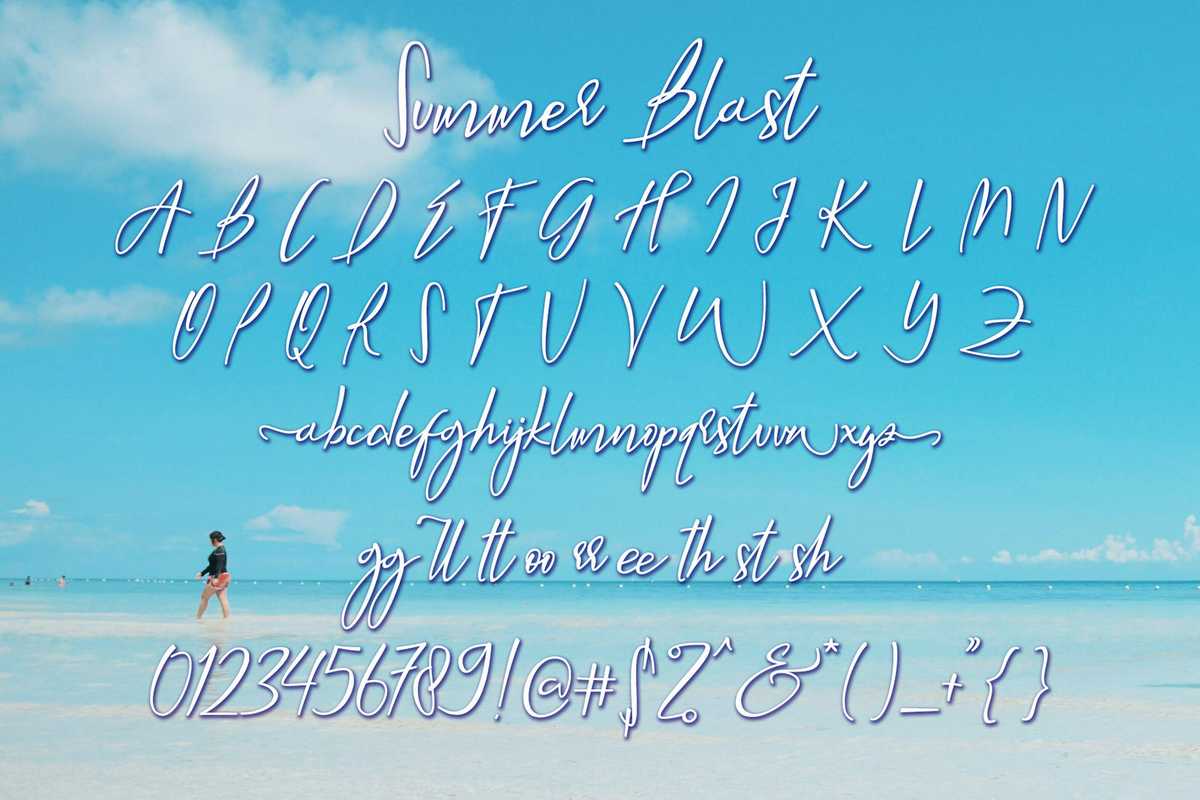 Summer Blast
A B C D E F G H I J K L M N
O P Q R S T U V W X Y Z
abcdefghijklmnopqrstuvwxyz
gg ll tt oo rr ee th st sh
0123456789!@#$%^&*()_+"{}